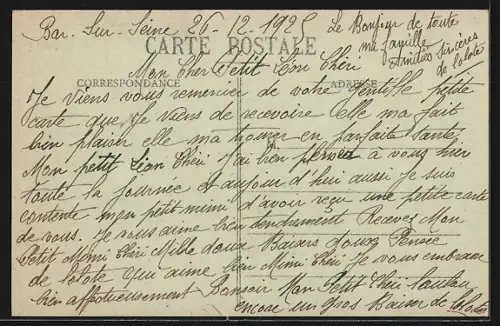 Bar-Sur-Seine 26-12-1925
Le Bonjour de toute
ma famille
Amitiés Sincères
de lolote
CARTE POSTALE
Mon Cher Petit Léon Chéri
CORRESPONDANCE
ADRESSE
Je Viens vous remercier de votre gentille petite
carte que Je Viens de recevoire elle ma fait
bien plaiser elle ma trouver en parfaite santé
Mon petit Léon Chéri J'ai bien penser à vous hier
toute la Journee et aujour d'hui aussi Je suis
contente mon petit mimi d'avoir reçu une petite carte
de vous. Je vous aime bien tendrement Recevez Mon
Petit Mimi Chéri Mille doux Baisers douse Pensee
de lolote qui aime bien Mimi Chéri Je vous embrasse
bien affectueusement Bonsoir Mon Petit Chéri
encore un gros Baiser de lolote